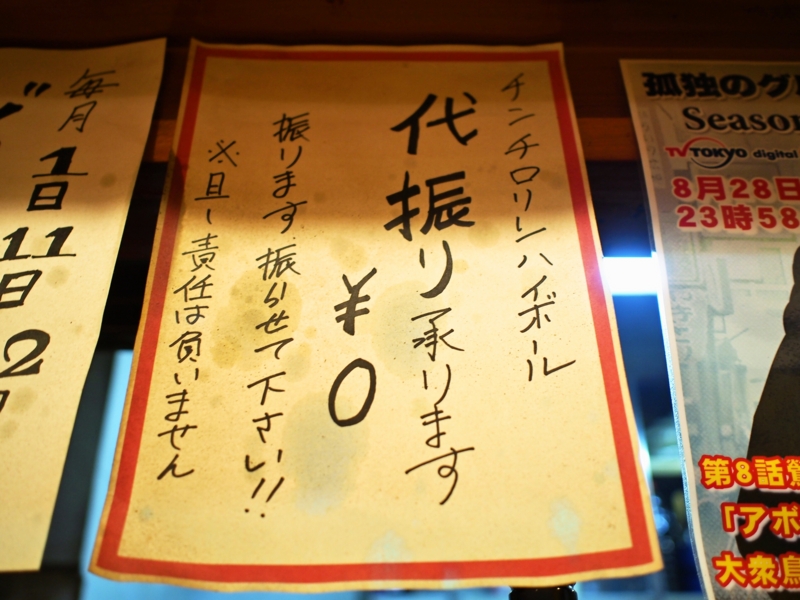 チンチロリンハイボール
代振り承ります
¥0
振ります。振らせて下さい!!
※且し責任は負いません
毎月
1日
11日
2
孤独のグ
Season
TV TOKYO digital
8月28日
23時58
第8話
「アボ
大衆